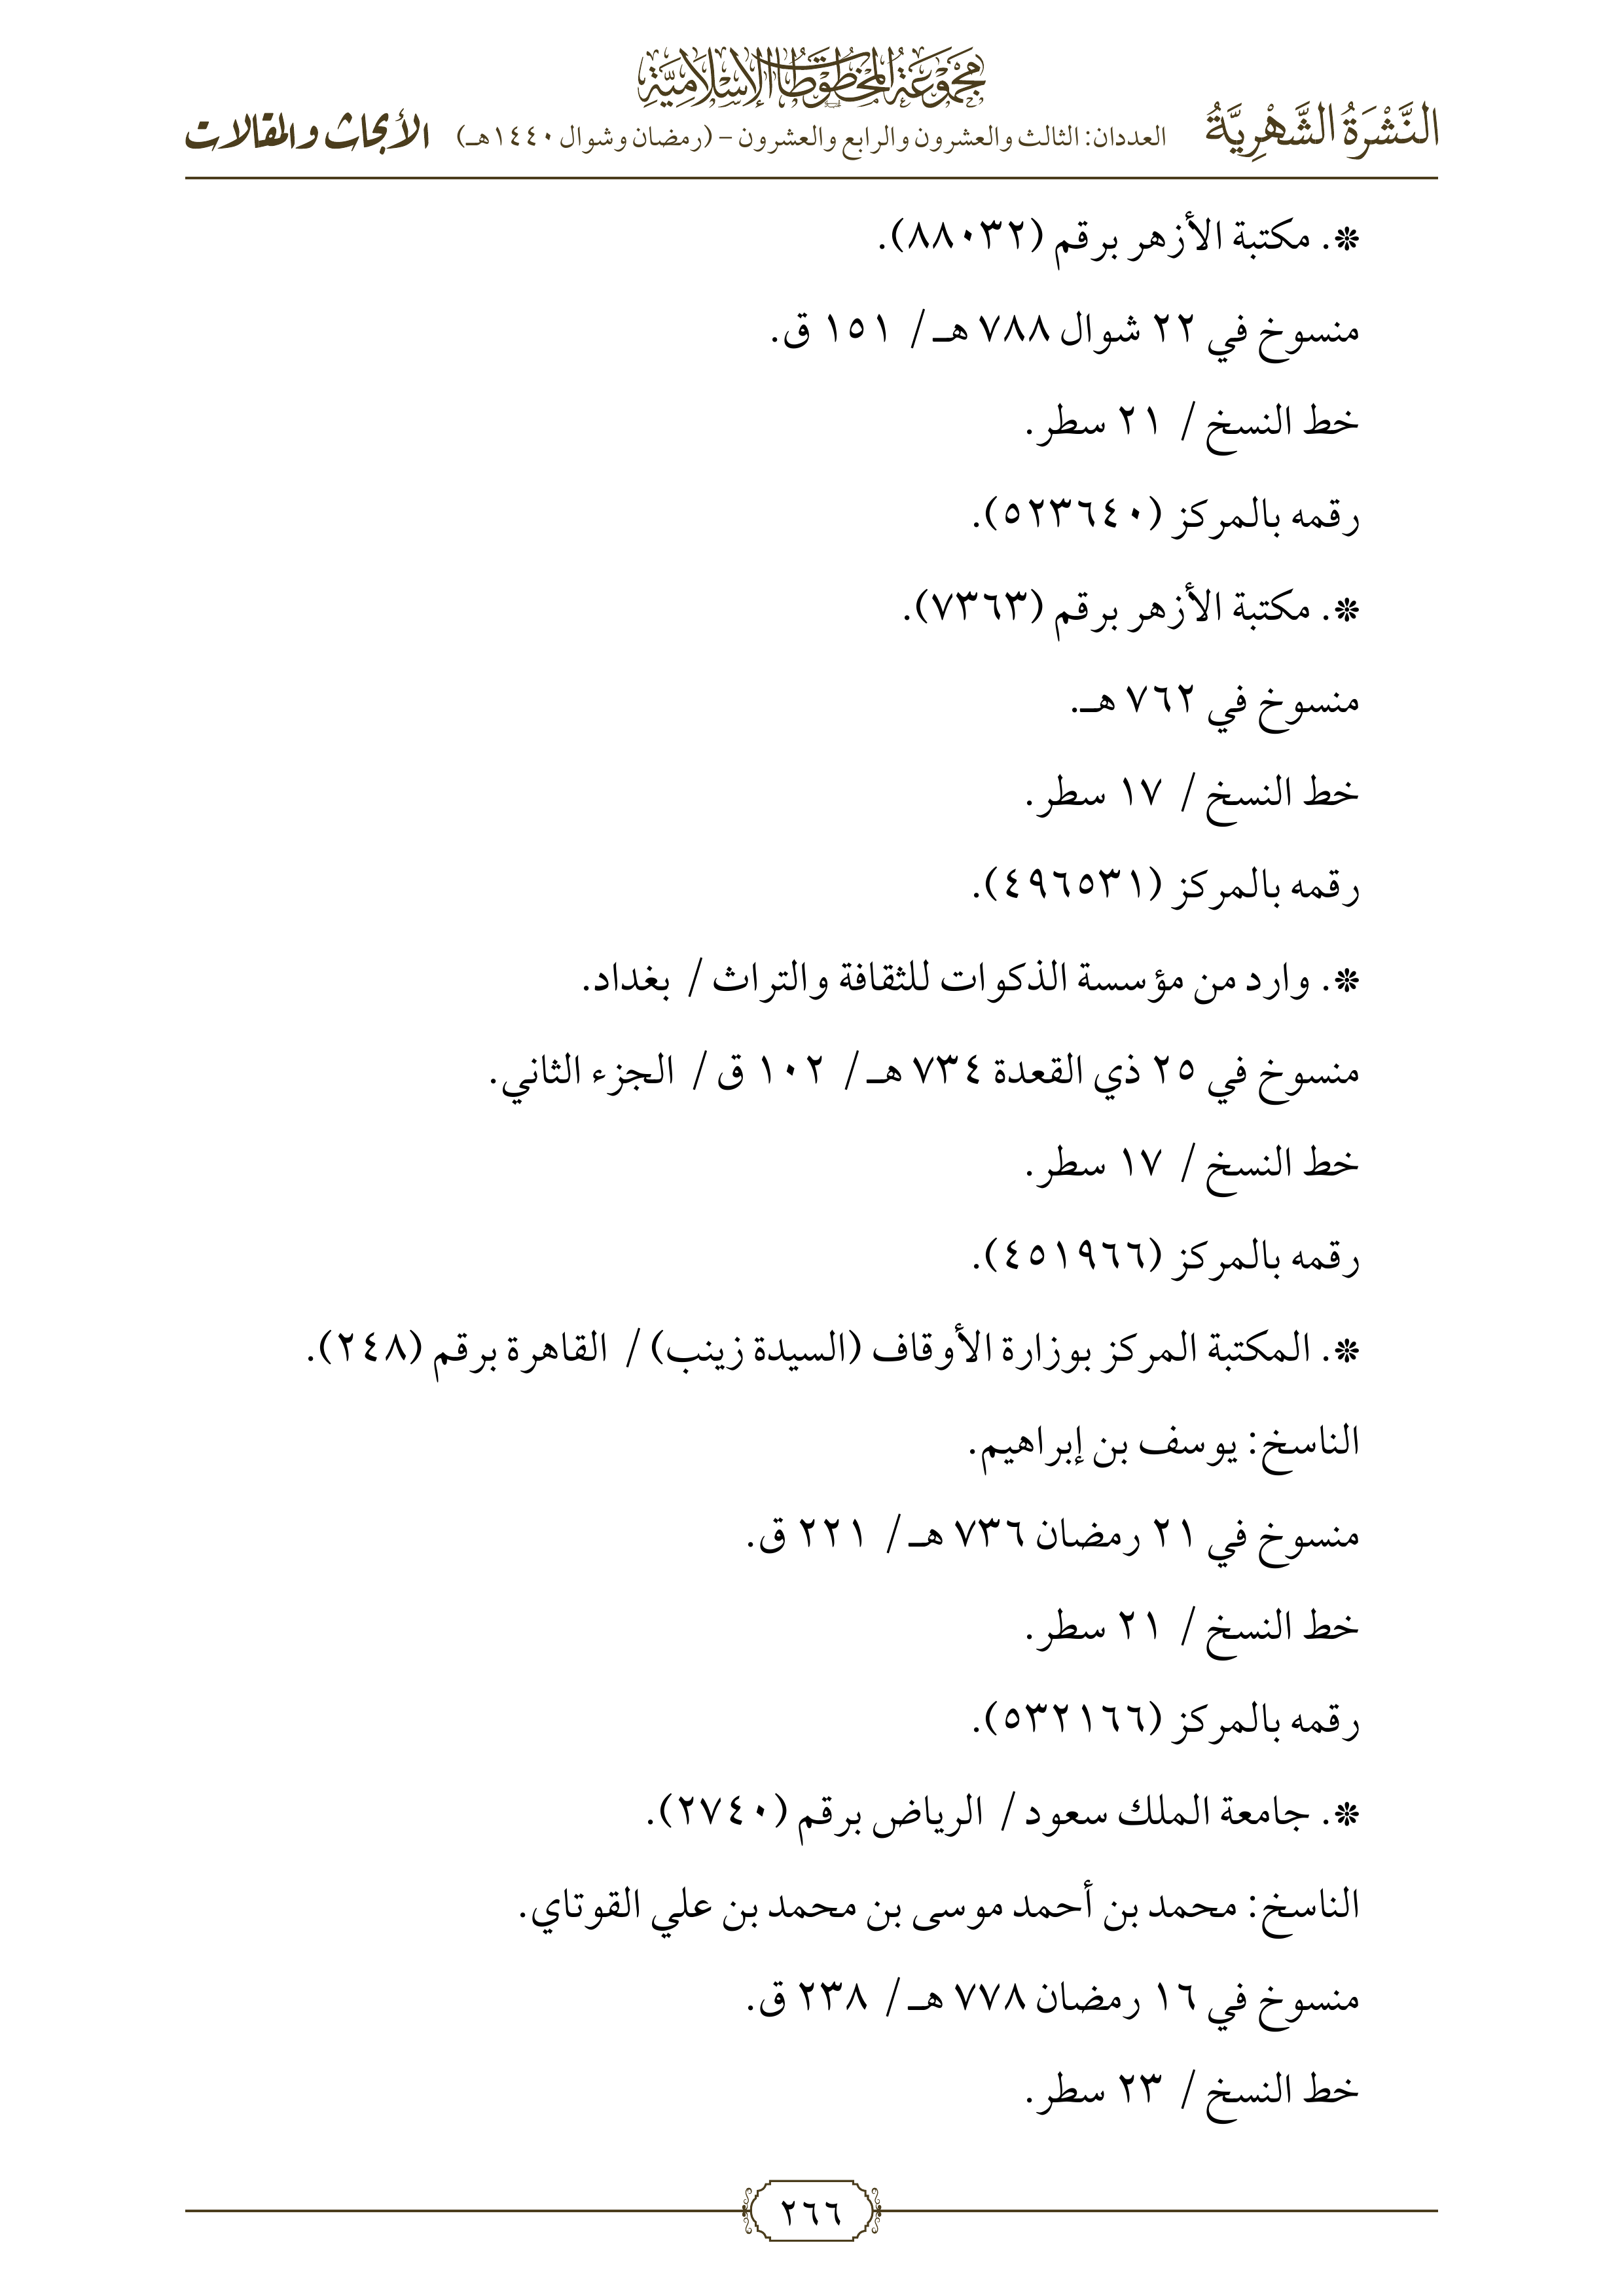 مجموعة المخطوطات الإسلامية
النَّشْرَةُ الشَّهْرِيَّةُ العددان: الثالث والعشرون والرابع والعشرون – (رمضان وشوال ١٤٤٠هـ) الأبحاث والمقالات
❊. مكتبة الأزهر برقم (٨٨٠٣٢).
منسوخ في ٢٢ شوال ٧٨٨ هـ/ ١٥١ ق.
خط النسخ/ ٢١ سطر.
رقمه بالمركز (٥٢٣٦٤٠).
❊. مكتبة الأزهر برقم (٧٣٦٣).
منسوخ في ٧٦٢ هـ.
خط النسخ/ ١٧ سطر.
رقمه بالمركز (٤٩٦٥٣١).
❊. وارد من مؤسسة الذكوات للثقافة والتراث/ بغداد.
منسوخ في ٢٥ ذي القعدة ٧٣٤ هـ/ ١٠٢ ق/ الجزء الثاني.
خط النسخ/ ١٧ سطر.
رقمه بالمركز (٤٥١٩٦٦).
❊. المكتبة المركز بوزارة الأوقاف (السيدة زينب)/ القاهرة برقم (٢٤٨).
الناسخ: يوسف بن إبراهيم.
منسوخ في ٢١ رمضان ٧٣٦ هـ/ ٢٢١ ق.
خط النسخ/ ٢١ سطر.
رقمه بالمركز (٥٣٢١٦٦).
❊. جامعة الملك سعود/ الرياض برقم (٢٧٤٠).
الناسخ: محمد بن أحمد موسى بن محمد بن علي القوتاي.
منسوخ في ١٦ رمضان ٧٧٨ هـ/ ٢٣٨ ق.
خط النسخ/ ٢٣ سطر.
٢٦٦